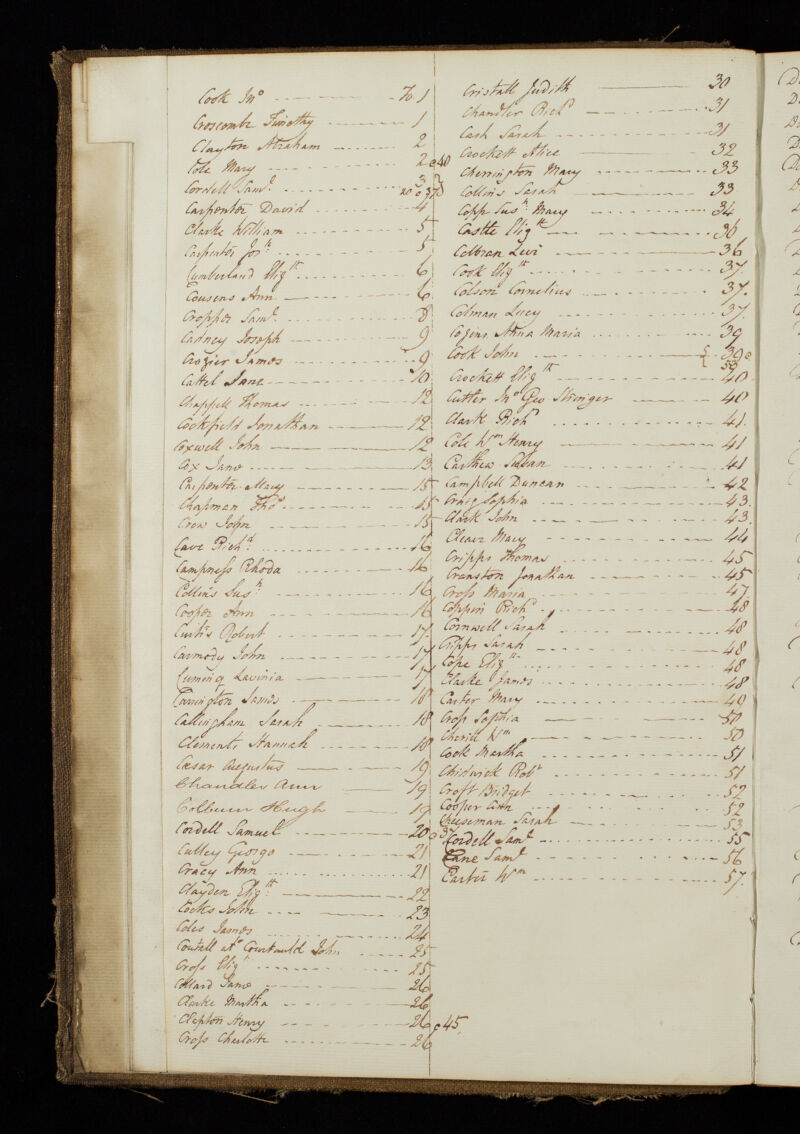 Cook Jnº fo 1
Croscombe Timothy 1
Clayton Abraham 2
Cole Mary 2 e 40
Cordell Saml. 3 20 e 37
Carpenter David 4
Clarke William 5
Carpenter Josh. 5
Cumberland Elizth. 6
Cousens Ann 6
Cropper Saml. 8
Cadney Joseph 9
Crozier James 9
Cattel Jane 10
Chappell Thomas 12
Cockfield Jonathan 12
Coxwell John 12
Cox Jane 13
Carpenter Mary 15
Chapman Thos. 15
Crow John 15
Cave Richd. 16
Campness Rhoda 16
Collins Sush. 16
Cooper Ann 16
Curtis Robert 17
Carmody John 17
Cuming Lavinia 17
Carrington James 18
Callingham Sarah 18
Clements Hannah 18
Cæsar Augustus 19
Chandler Ann 19
Colburn Hugh 19
Cordell Samuel 20 e 37
Culley George 21
Cracy Ann 21
Clayden Elizth. 22
Cocks John 23
Coles James 24
Courtauld John 25
Cross Elizth 25
Collard Jane 26
Clarke Martha 26
Clepton Henry 26 e 45
Cross Charlotte 26
Cristall Judith 30
Chandler Richd 31
Cash Sarah 31
Crockett Alice 32
Cherrington Mary 33
Collins Sarah 33
Copp Sush. Mary 34
Castle Elizth 36
Coltran Levi 36
Cook Elizth 37
Colson Cornelius 37
Colman Lucy 37
Cozens Anna Maria 39
Cook John 39 e 59
Crockett Elizth 40
Cutter Jnº Geo Stringer 40
Clark Richd 41
Cole Wm Henry 41
Carthew Susan 41
Campbell Duncan 42
Craig Sophia 43
Clark John 43
Cleaver Mary 44
Cripps Thomas 45
Cranston Jonathan 45
Cross Maria 47
Coppin Richd 48
Cornwell Sarah 48
Cripps Sarah 48
Cope Elizth 48
Clarke James 48
Carter Mary 40
Cross Sophia 50
Cherill Wm 50
Cook Martha 51
Chidwick Robt 51
Croft Bridget 52
Cooper Ann 52
Cheeseman Sarah 53
Cordell Saml 55
Cane Saml 56
Carter Wm 57